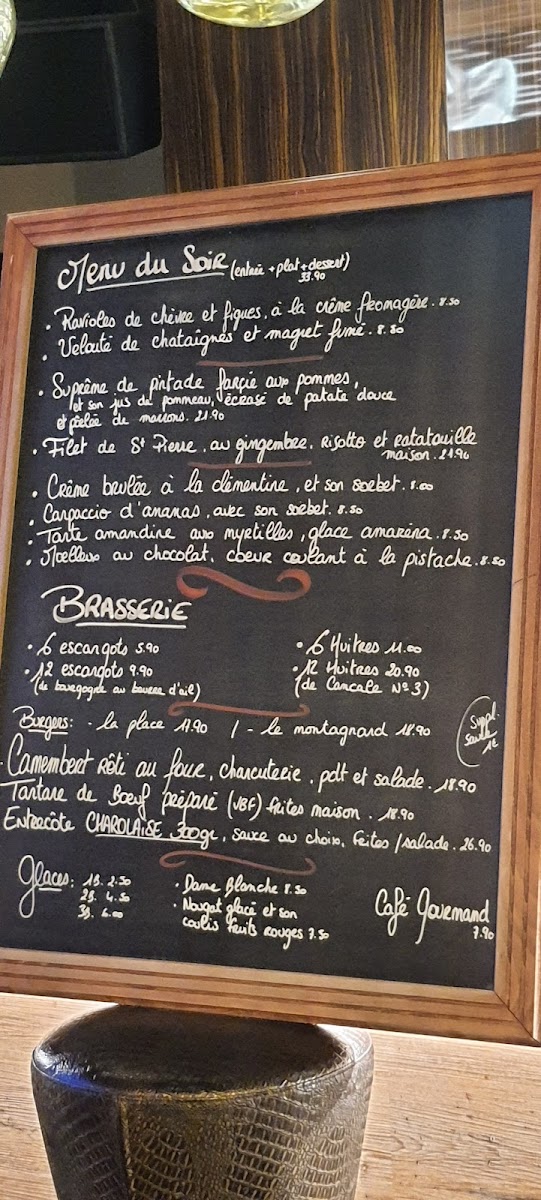 Menu du Soir (entrée + plat + dessert)
33.90
• Ravioles de chèvre et figues, à la crême fromagère. 8.50
• Velouté de chataîgnes et magret fumé. 8.80
• Suprême de pintade farçie aux pommes,
et son jus du pommeau, écrasé de patate douce
et poêlée de marrons. 21.90
• Filet de St Pierre, au gingembre, risotto et ratatouille
maison. 21.90
• Crême brulée à la clémentine, et son sorbet. 8.00
• Carpaccio d'ananas, avec son sorbet. 8.50
• Tarte amandine aux myrtilles, glace amarena. 8.50
• Moelleux au chocolat, coeur coulant à la pistache. 8.50
BRASSERIE
• 6 escargots 5.90
• 12 escargots 9.90
(de bourgogne au beurre d'ail)
• 6 Huitres 11.00
• 12 Huitres 20.90
(de Cancale N°3)
Burgers: - la place 17.90 / - le montagnard 18.90
Suppl.
sauce
1€
Camembert Rôti au four, charcuterie, pdt et salade. 18.90
Tartare de Boeuf préparé (VBF) frites maison. 18.90
Entrecôte CHAROLAISE 300gr, sauce au choix, frites/salade. 26.90
Glaces: 1B. 2.50
2B. 4.50
3B. 6.00
• Dame Blanche 8.50
• Nougat glacé et son
coulis fruits rouges 7.50
Café Gourmand
7.90